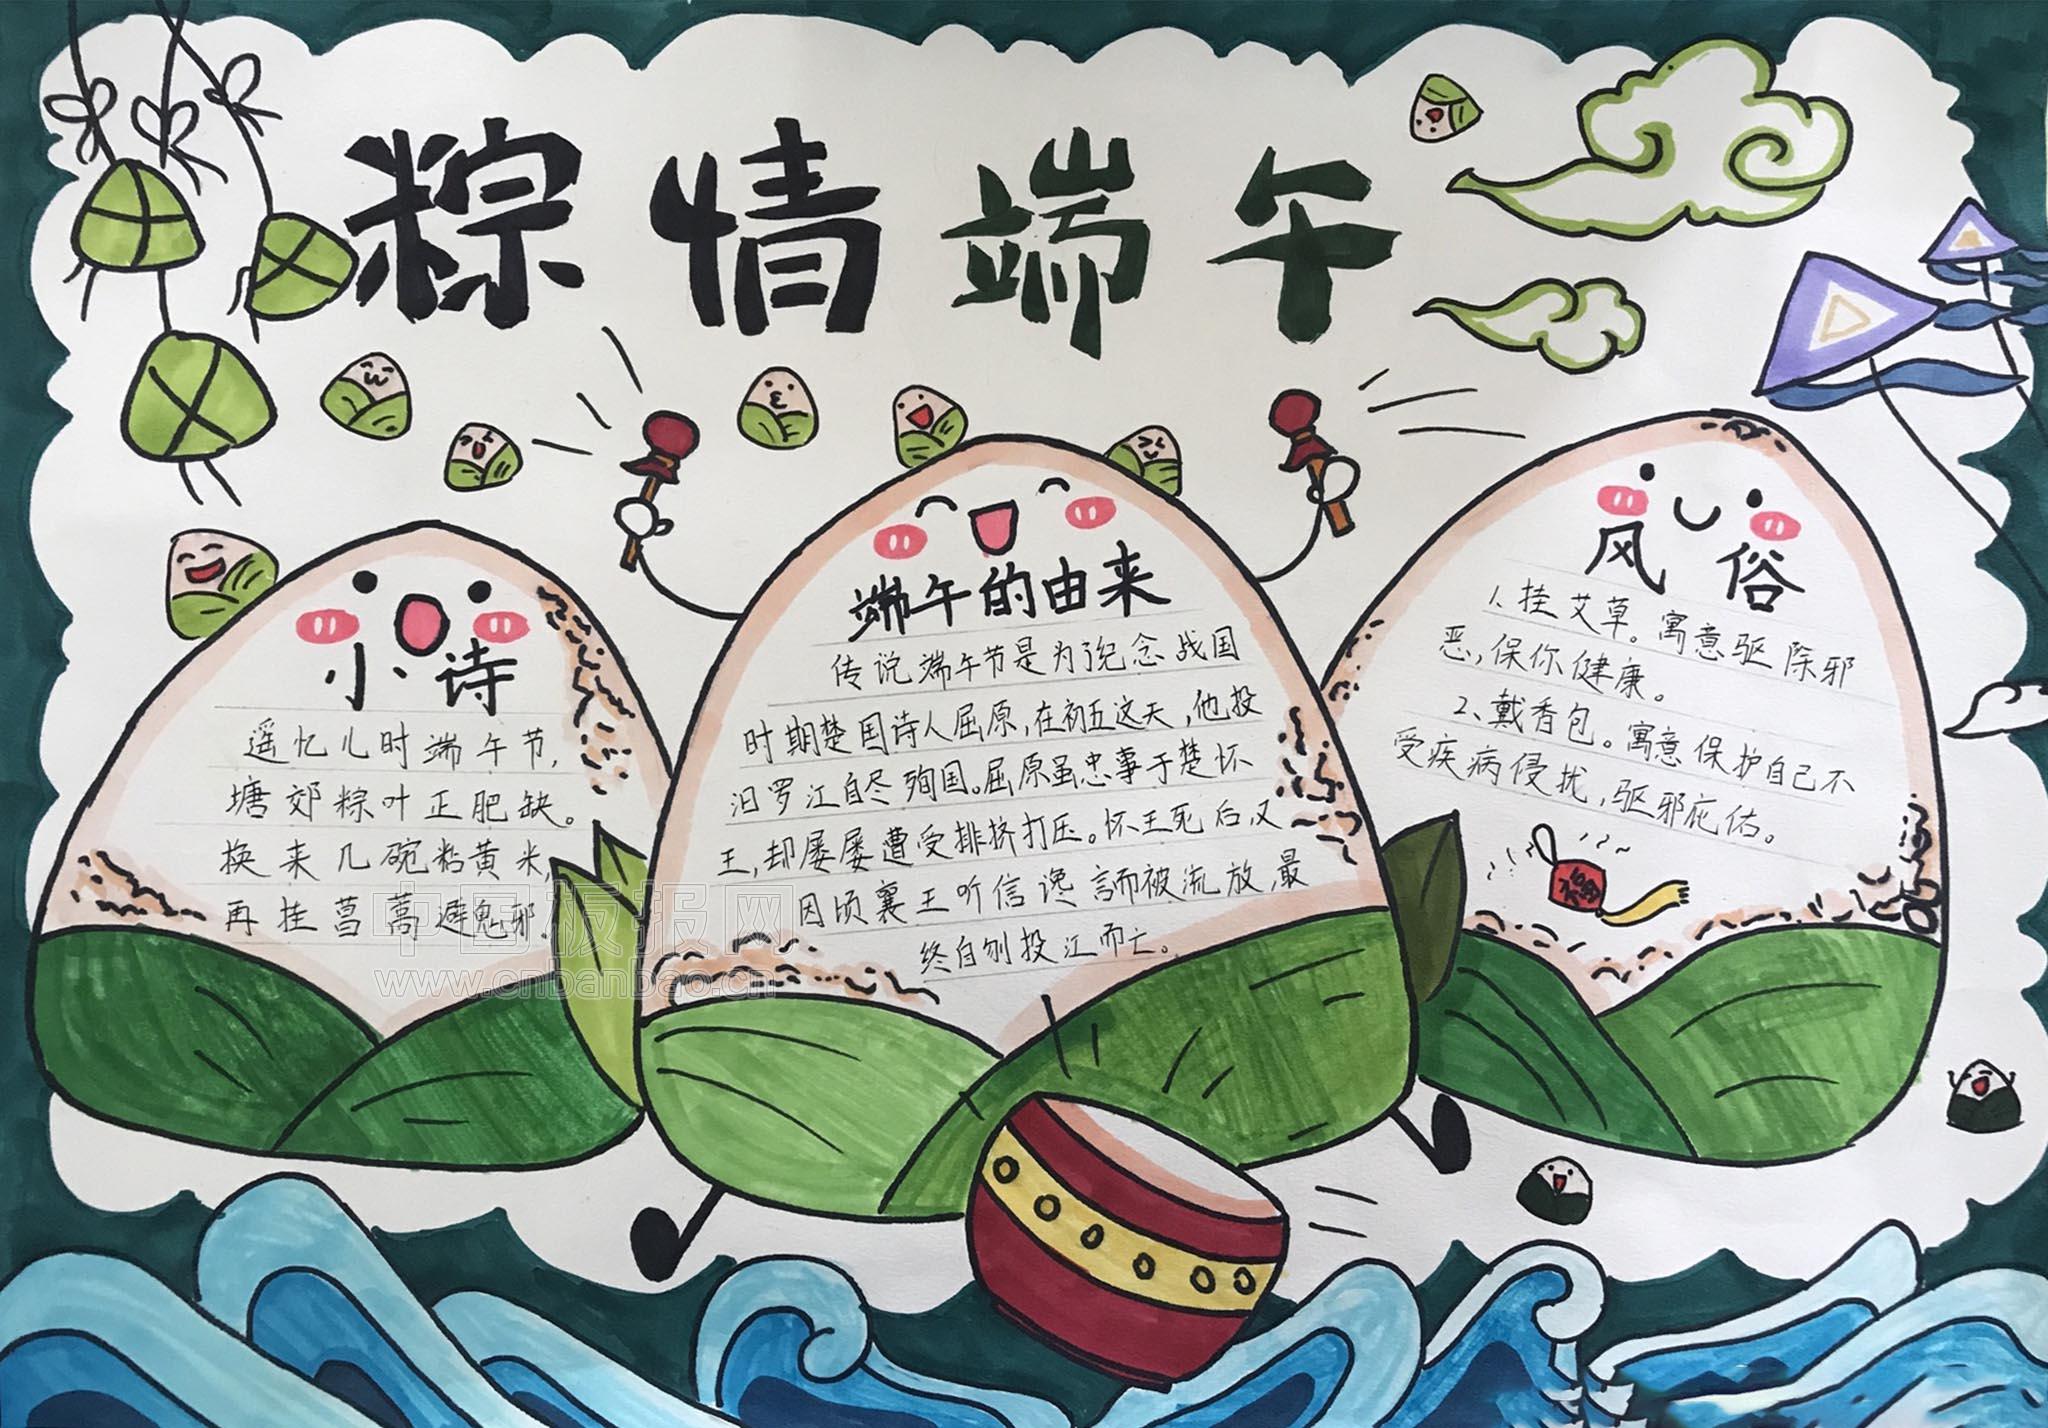 粽情端午
小诗
遥忆儿时端午节,
塘郊粽叶正肥缺。
换来几碗粘黄米,
再挂菖蒿避鬼邪.
端午的由来
传说端午节是为了纪念战国
时期楚国诗人屈原,在初五这天,他投
汨罗江自尽殉国。屈原虽忠事于楚怀
王,却屡屡遭受排挤打压。怀王死后又
因顷襄王听信谗言而被流放,最
终自刎投江而亡。
风俗
1、挂艾草。寓意驱除邪
恶,保你健康。
2、戴香包。寓意保护自己不
受疾病侵扰,驱邪庇佑。
中国板报网
www.cnbanbao.cn